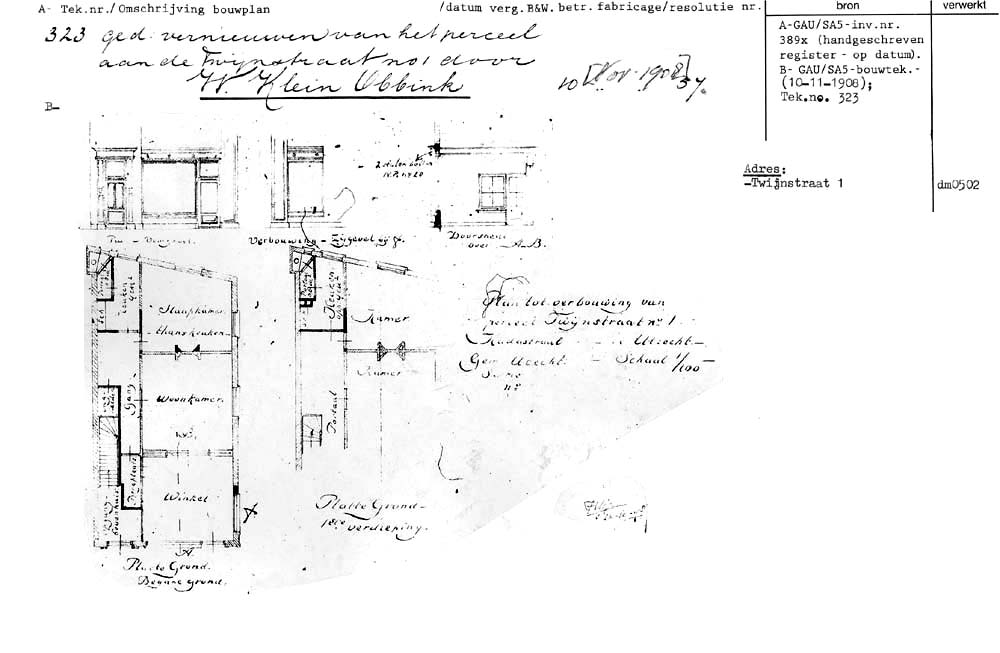 A- Tek.nr./Omschrijving bouwplan
/datum verg.B&W.betr.fabricage/resolutie nr.
bron
verwerkt
323 ged. vernieuwen van het perceel
aan de Twijnstraat no 1 door
W. Klein Obbink
10 [Nov. 1908]
A-GAU/SA5-inv.nr.
389x (handgeschreven
register - op datum).
B- GAU/SA5-bouwtek.-
(10-11-1908);
Tek.no. 323
B-
Adres:
-Twijnstraat 1
dm0502
Verbouwing - Zijgevel
Doorsnede
over A-B.
Slaapkamer
Keuken
Kamer
Kamer
Gang
Woonkamer
Portaal
Winkel
A.
Platte Grond
Begane grond.
Platte Grond
1ste verdieping.
Plan tot verbouwing van
perceel Twijnstraat no 1.
Kadastraal Utrecht
Gem Utrecht Schaal 1/100
Sectie
no